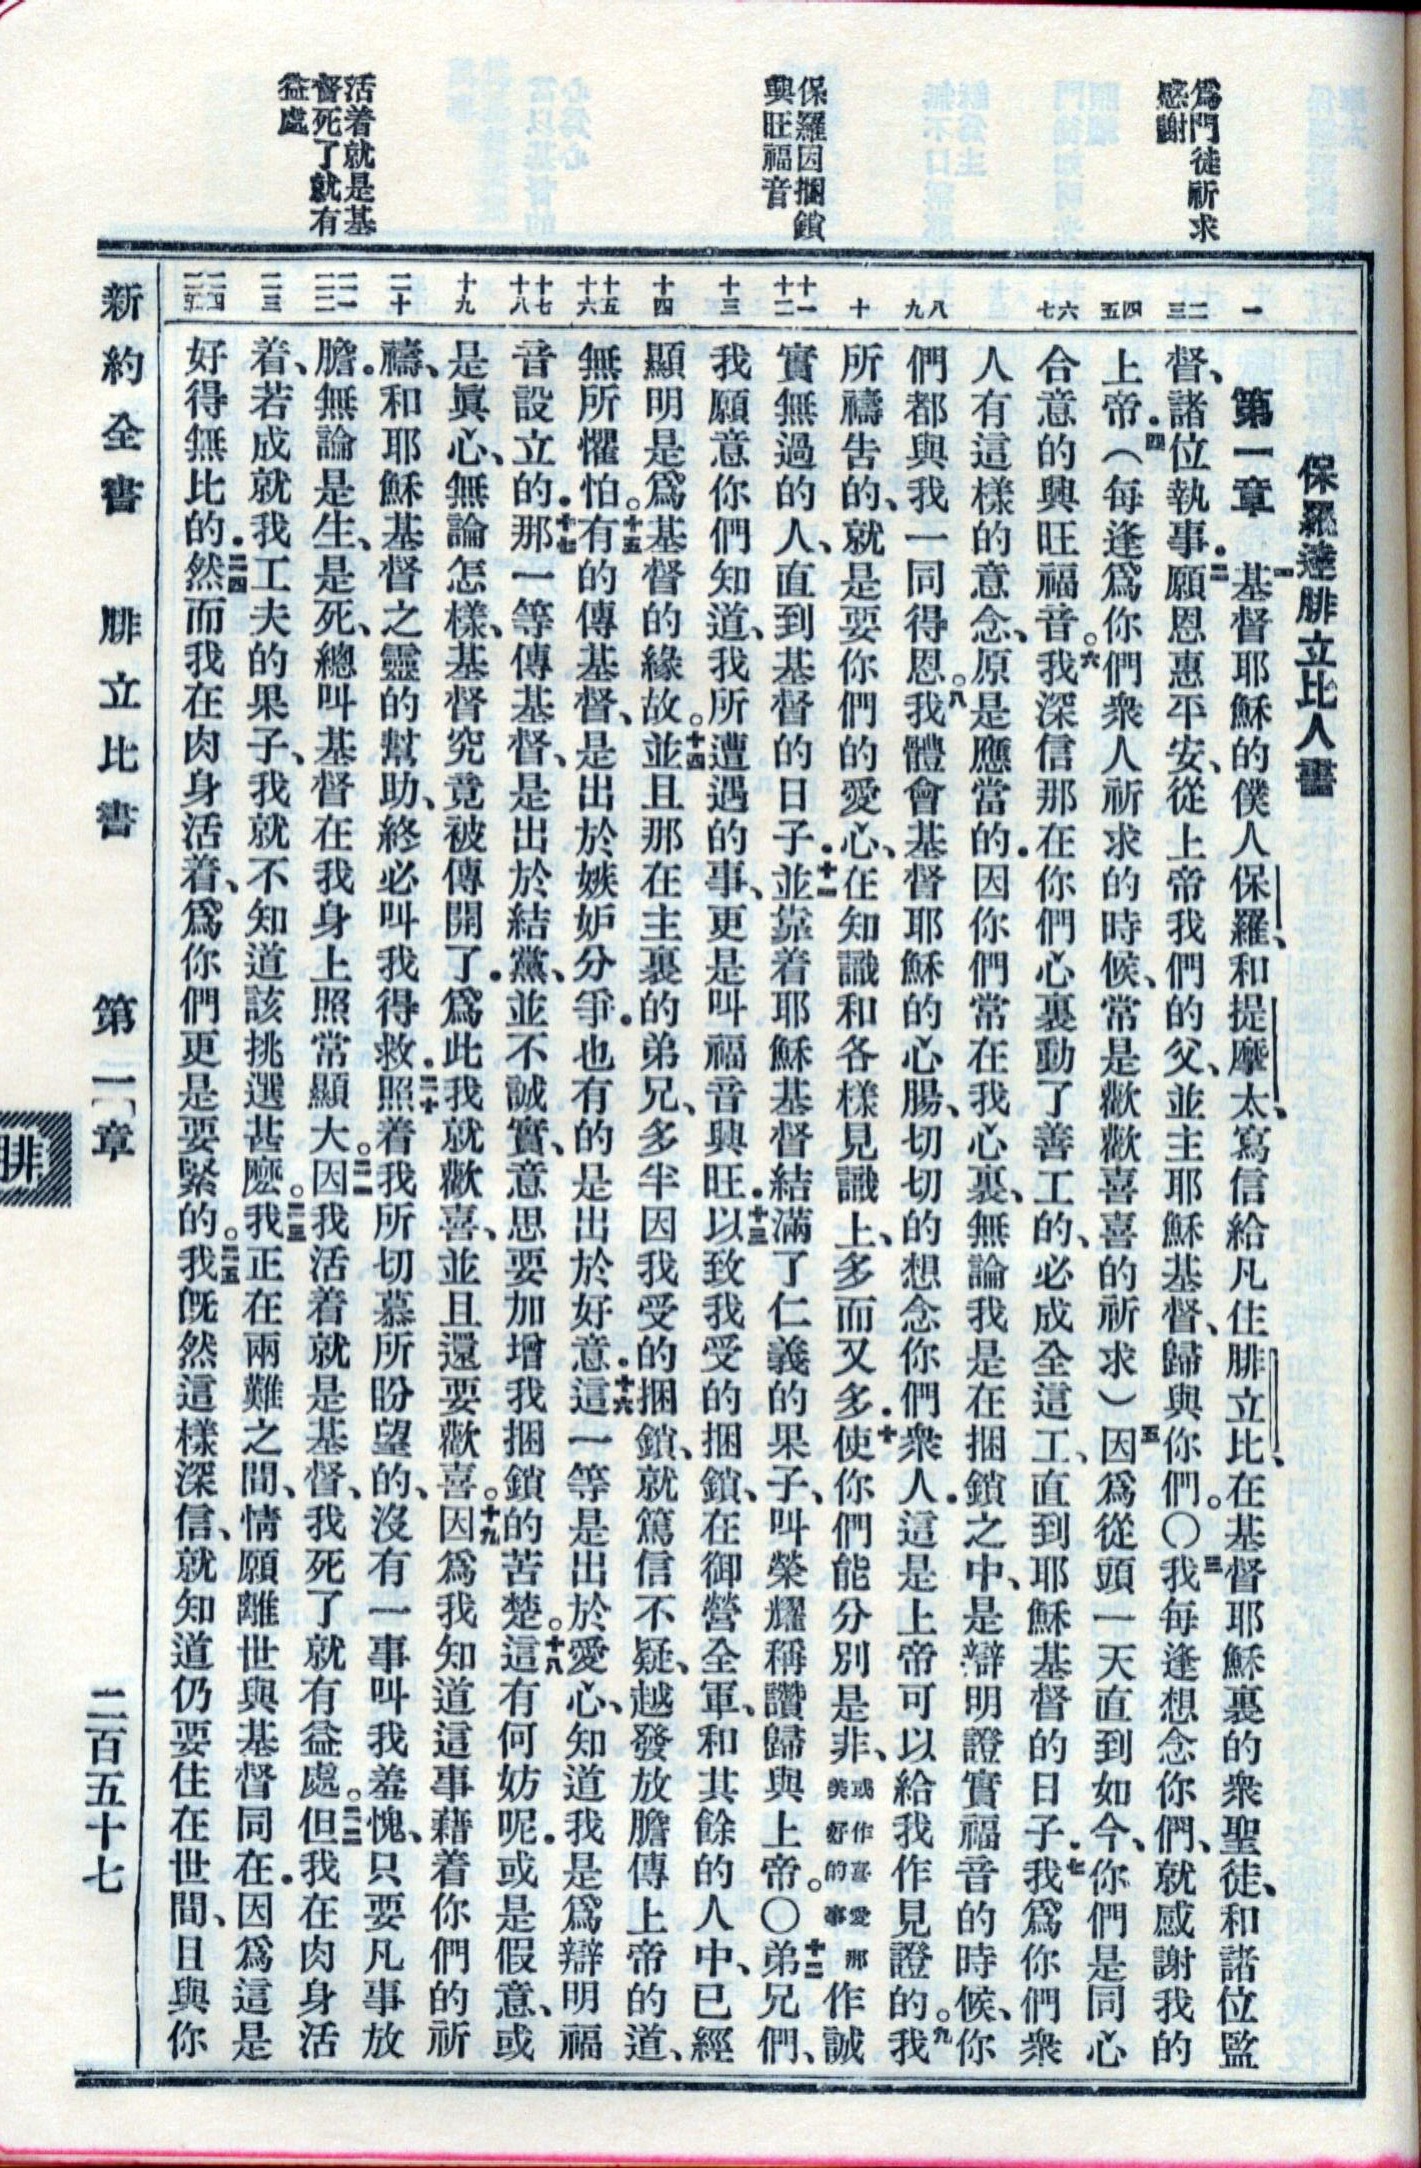 為門徒祈求
感謝
保羅因捆鎖
興旺福音
活着就是基
督死了就有
益處
保羅達腓立比人書
一
第一章 一基督耶穌的僕人保羅、和提摩太、寫信給凡住腓立比、在基督耶穌裏的衆聖徒、和諸位監
二三
督、諸位執事．二願恩惠平安、從上帝我們的父、並主耶穌基督、歸與你們。〇三我每逢想念你們、就感謝我的
四五
上帝．四（每逢爲你們衆人祈求的時候、常是歡歡喜喜的祈求）五因爲從頭一天直到如今、你們是同心
六七
合意的興旺福音。六我深信那在你們心裏動了善工的、必成全這工、直到耶穌基督的日子．七我爲你們衆
人有這樣的意念、原是應當的．因你們常在我心裏、無論我是在捆鎖之中、是辯明證實福音的時候、你
八九
們都與我一同得恩。八我體會基督耶穌的心腸、切切的想念你們衆人．這是上帝可以給我作見證的。九我
十
所禱告的、就是要你們的愛心、在知識和各樣見識上、多而又多．十使你們能分別是非、或作喜愛那美好的事作誠
十一十二
實無過的人、直到基督的日子．十一並靠着耶穌基督結滿了仁義的果子、叫榮耀稱讚歸與上帝。〇十二弟兄們、
十三
我願意你們知道、我所遭遇的事、更是叫福音興旺．十三以致我受的捆鎖、在御營全軍、和其餘的人中、已經
十四
顯明是爲基督的緣故。十四並且那在主裏的弟兄、多半因我受的捆鎖、就篤信不疑、越發放膽傳上帝的道、
十五十六
無所懼怕。十五有的傳基督、是出於嫉妒分爭．也有的是出於好意．十六這一等是出於愛心、知道我是爲辯明福
十七十八
音設立的．十七那一等傳基督、是出於結黨、並不誠實、意思要加增我捆鎖的苦楚。十八這有何妨呢．或是假意、或
十九
是眞心、無論怎樣、基督究竟被傳開了．爲此我就歡喜、並且還要歡喜。十九因爲我知道這事藉着你們的祈
二十
禱、和耶穌基督之靈的幫助、終必叫我得救．二十照着我所切慕所盼望的、沒有一事叫我羞愧、只要凡事放
二一二二
膽．無論是生、是死、總叫基督在我身上照常顯大。二一因我活着就是基督、我死了就有益處。二二但我在肉身活
二三
着、若成就我工夫的果子、我就不知道該挑選甚麽。二三我正在兩難之間、情願離世與基督同在．因爲這是
二四二五
好得無比的．二四然而我在肉身活着、爲你們更是要緊的。二五我旣然這樣深信、就知道仍要住在世間、且與你
新約全書 腓立比書 第一章 二百五十七
腓